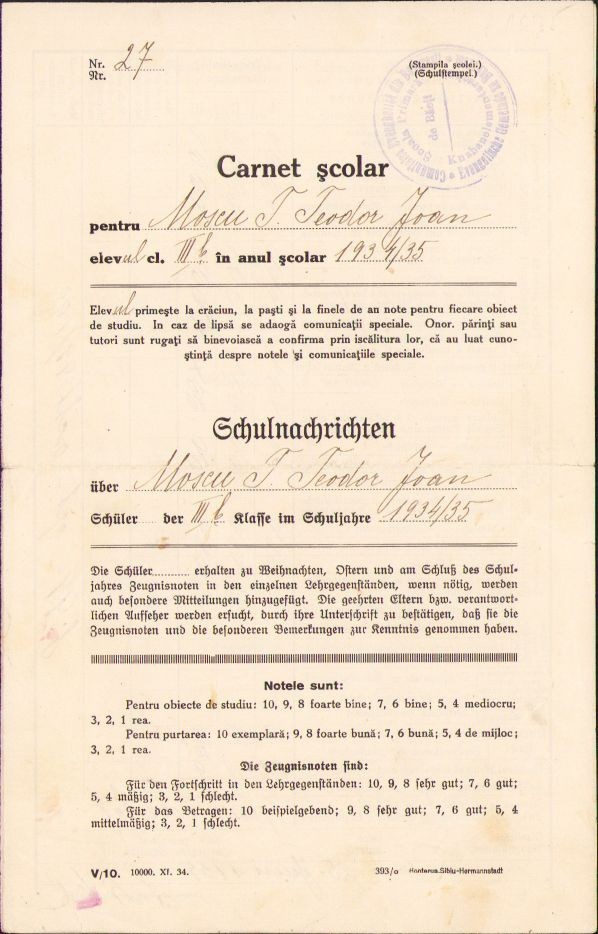 Nr. 27
Nr.
(Stampila școlei.)
(Schulstempel.)
Carnet școlar
pentru Moscu T. Teodor Joan
elevul cl. III b în anul școlar 1934/35
Elevul primește la crăciun, la paști și la finele de an note pentru fiecare obiect
de studiu. In caz de lipsă se adaogă comunicații speciale. Onor. părinți sau
tutori sunt rugați să binevoiască a confirma prin iscălitura lor, că au luat cuno-
ștință despre notele și comunicațiile speciale.
Schulnachrichten
über Moscu T. Teodor Joan
Schüler der III b Klasse im Schuljahre 1934/35
Die Schüler erhalten zu Weihnachten, Ostern und am Schluß des Schul-
jahres Zeugnisnoten in den einzelnen Lehrgegenständen, wenn nötig, werden
auch besondere Mitteilungen hinzugefügt. Die geehrten Eltern bzw. verantwort-
lichen Aufseher werden ersucht, durch ihre Unterschrift zu bestätigen, daß sie die
Zeugnisnoten und die besonderen Bemerkungen zur Kenntnis genommen haben.
Notele sunt:
Pentru obiecte de studiu: 10, 9, 8 foarte bine; 7, 6 bine; 5, 4 mediocru;
3, 2, 1 rea.
Pentru purtarea: 10 exemplară; 9, 8 foarte bună; 7, 6 bună; 5, 4 de mijloc;
3, 2, 1 rea.
Die Zeugnisnoten sind:
Für den Fortschritt in den Lehrgegenständen: 10, 9, 8 sehr gut; 7, 6 gut;
5, 4 mäßig; 3, 2, 1 schlecht.
Für das Betragen: 10 beispielgebend; 9, 8 sehr gut; 7, 6 gut; 5, 4
mittelmäßig; 3, 2, 1 schlecht.
V/10. 10000. XI. 34.
393/o Honterus-Sibiu-Hermannstadt